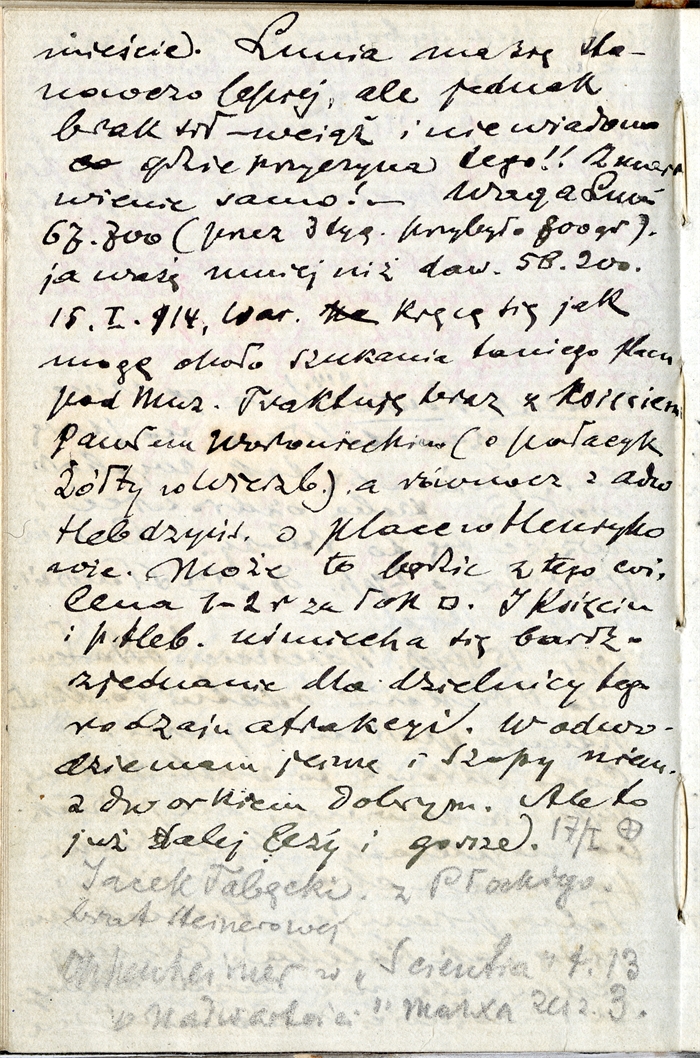 mieście). Lunia ma się sta-
nowczo lepiej, ale jednak
brak sił – wciąż i nie wiadomo
gdzie przyczyna tego!! Zmart
wienie samo! – Waga Luni
67.700 (przez 3 tyg. przybyło 700 gr).
ja ważę mniej niż daw. 58.200.
15. I. 914, War. Kręcę się jak
mogę około szukania taniego placu
pod Muz. Traktuję teraz z Księciem
Pawłem Woronieckim (o pałacyk
Żółty w Wierzb.) a równocz z adw
Hebdzyń. o place w Henryko
wie. Może to będzie z tego coś.
Cena 1–2 r za łok □. I Księciu
i p. Heb. uśmiecha się bardz-
zjednanie dla dzielnicy tego
rodzaju atrakcyi. W odwo-
dzie mam jeszcze i Szopy niem.
z dworkiem dobrym. Ale to
już dalej leży i gorsze). 17/I. ⊕
Jacek Tabęcki. z Płockiego.
brat Heinerowej
Oppenheimer w „Scientia" t. 13
o Nadwartości" Marxa zesz. 3.